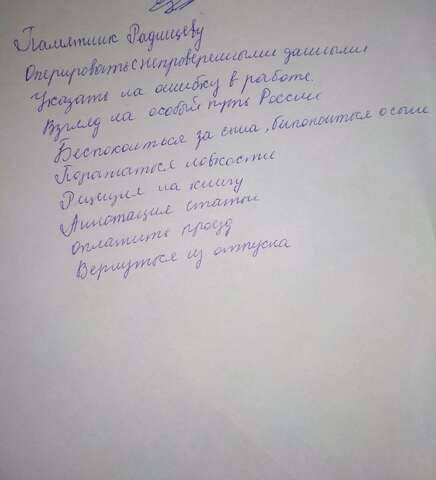 Памятник Радищеву
Оперировать непроверенными данными
Указать на ошибку в работе.
Взгляд на особый путь России
Беспокоиться за сына, беспокоиться о сыне
Поразиться ловкости
Рецензия на книгу
Аннотация статьи
Оплатить проезд
Вернуться из отпуска